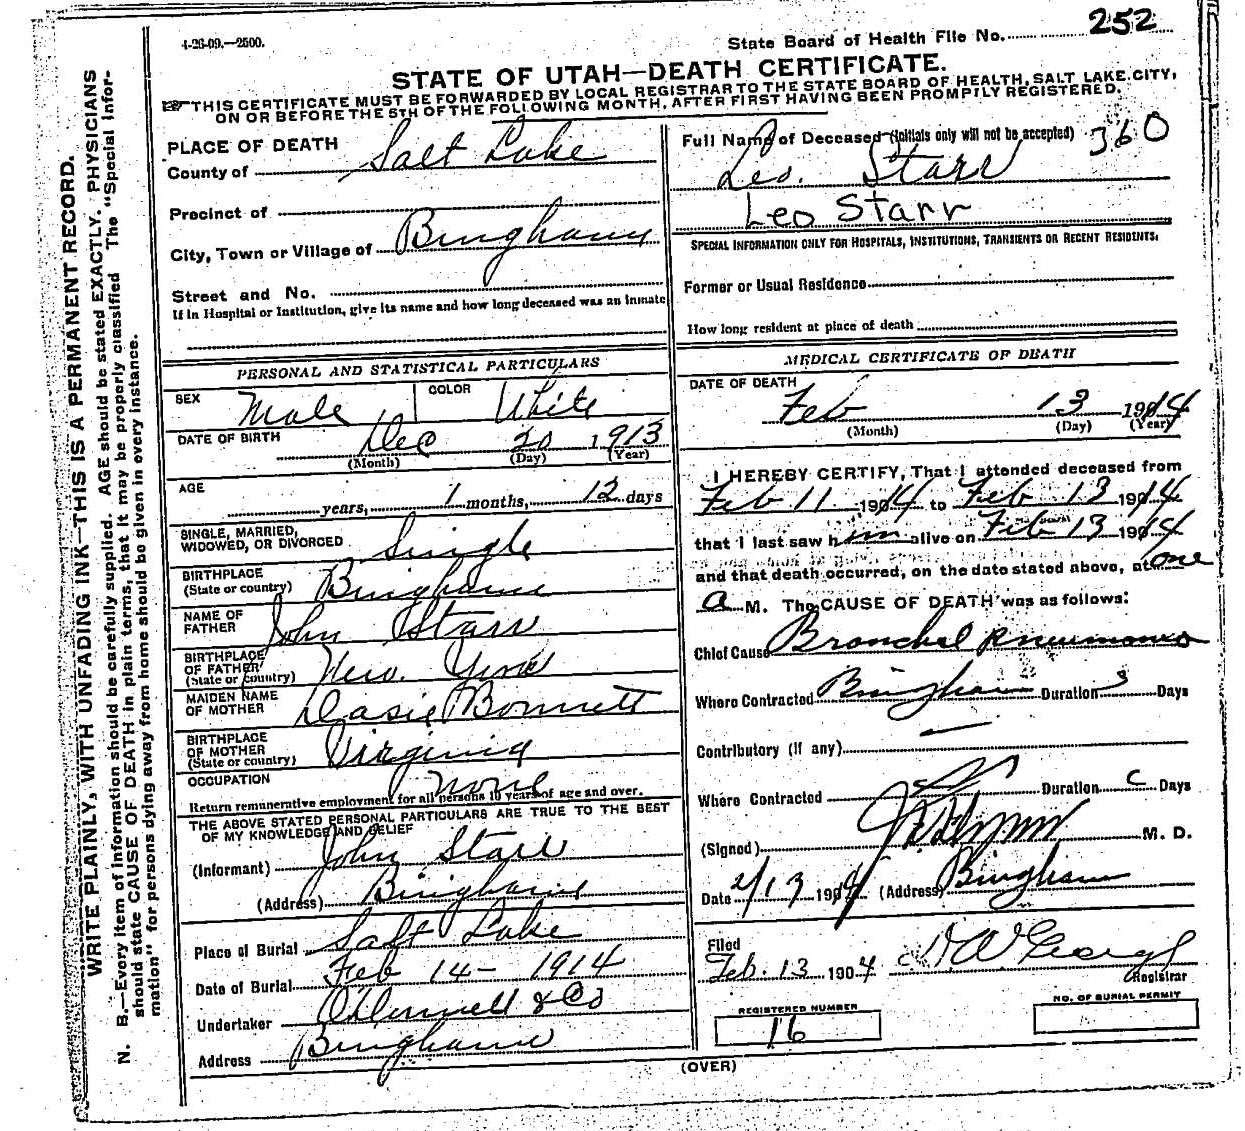 4-26-09.—2500.
State Board of Health File No. 252
STATE OF UTAH—DEATH CERTIFICATE.
THIS CERTIFICATE MUST BE FORWARDED BY LOCAL REGISTRAR TO THE STATE BOARD OF HEALTH, SALT LAKE CITY,
ON OR BEFORE THE 5TH OF THE FOLLOWING MONTH, AFTER FIRST HAVING BEEN PROMPTLY REGISTERED.
WRITE PLAINLY, WITH UNFADING INK—THIS IS A PERMANENT RECORD.
N. B.—Every item of information should be carefully supplied. AGE should be stated EXACTLY. PHYSICIANS
should state CAUSE OF DEATH in plain terms, that it may be properly classified. The "Special Infor-
mation" for persons dying away from home should be given in every instance.
PLACE OF DEATH
County of Salt Lake
Precinct of
City, Town or Village of Bingham
Street and No.
If in Hospital or Institution, give its name and how long deceased was an inmate
PERSONAL AND STATISTICAL PARTICULARS
SEX Male COLOR White
DATE OF BIRTH Dec 20 1913
(Month) (Day) (Year)
AGE years, 1 months, 12 days
SINGLE, MARRIED,
WIDOWED, OR DIVORCED Single
BIRTHPLACE
(State or country) Bingham
NAME OF
FATHER John Starr
BIRTHPLACE
OF FATHER
(State or country) New York
MAIDEN NAME
OF MOTHER Dasie Bonnett
BIRTHPLACE
OF MOTHER
(State or country) Virginia
OCCUPATION None
Return remunerative employment for all persons 10 years of age and over.
THE ABOVE STATED PERSONAL PARTICULARS ARE TRUE TO THE BEST
OF MY KNOWLEDGE AND BELIEF
(Informant) John Starr
(Address) Bingham
Place of Burial Salt Lake
Date of Burial Feb 14- 1914
Undertaker O'Donnell & Co
Address Bingham
Full Name of Deceased (Initials only will not be accepted) 360
Leo. Starr
Leo Starr
SPECIAL INFORMATION ONLY FOR HOSPITALS, INSTITUTIONS, TRANSIENTS OR RECENT RESIDENTS.
Former or Usual Residence
How long resident at place of death
MEDICAL CERTIFICATE OF DEATH
DATE OF DEATH
Feb 13 1914
(Month) (Day) (Year)
I HEREBY CERTIFY, That I attended deceased from
Feb 11 1914 to Feb 13 1914
that I last saw him alive on Feb 13 1914
and that death occurred, on the date stated above, at one
a M. The CAUSE OF DEATH was as follows:
Chief Cause Bronchel pneumonia
Where Contracted Bingham Duration 3 Days
Contributory (if any)
Where Contracted Duration Days
(Signed) Flynn M. D.
Date 2/13 1914 (Address) Bingham
Filed
Feb. 13 1904
Registrar
REGISTERED NUMBER
16
NO. OF BURIAL PERMIT
(OVER)